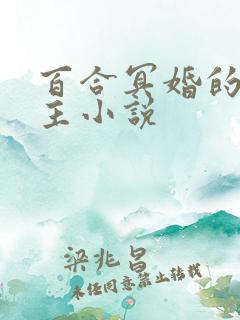 百合冥婚的
主小说
梁兆昌
未经同意禁止转载